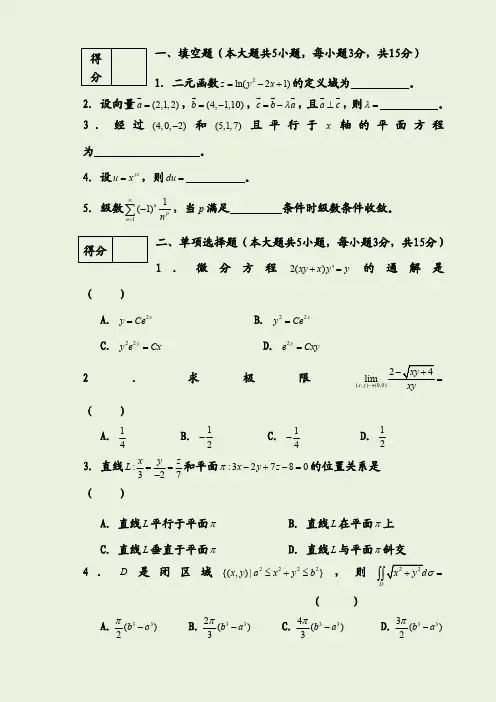 得
分
一、填空题（本大题共5小题，每小题3分，共15分）
1．二元函数 z = ln(y² - 2x + 1) 的定义域为 ________。
2．设向量 a⃗ = (2,1,2)，b⃗ = (4,-1,10)，c⃗ = b⃗ - λa⃗，且 a⃗ ⊥ c⃗，则 λ = ________。
3．经过 (4,0,-2) 和 (5,1,7) 且平行于 x 轴的平面方程
为 ________。
4．设 u = x^{yz}，则 du = ________。
5．级数 ∑_{n=1}^{∞} (-1)^n 1/n^p，当 p 满足 ________ 条件时级数条件收敛。
得分
二、单项选择题（本大题共5小题，每小题3分，共15分）
1．微分方程 2(xy + x)y' = y 的通解是
（ ）
A．y = Ce^{2x} B．y² = Ce^{2x}
C．y²e^{2y} = Cx D．e^{2y} = Cxy
2．求极限 lim_{(x,y)→(0,0)} (2 - √(xy + 4))/xy =
（ ）
A．1/4 B．-1/2 C．-1/4 D．1/2
3．直线 L: x/3 = y/-2 = z/7 和平面 π: 3x - 2y + 7z - 8 = 0 的位置关系是
（ ）
A．直线 L 平行于平面 π B．直线 L 在平面 π 上
C．直线 L 垂直于平面 π D．直线 L 与平面 π 斜交
4．D 是闭区域 {(x,y) | a² ≤ x² + y² ≤ b²}，则 ∬_D √(x² + y²) dσ =
（ ）
A．π/2 (b³ - a³) B．2π/3 (b³ - a³) C．4π/3 (b³ - a³) D．3π/2 (b³ - a³)